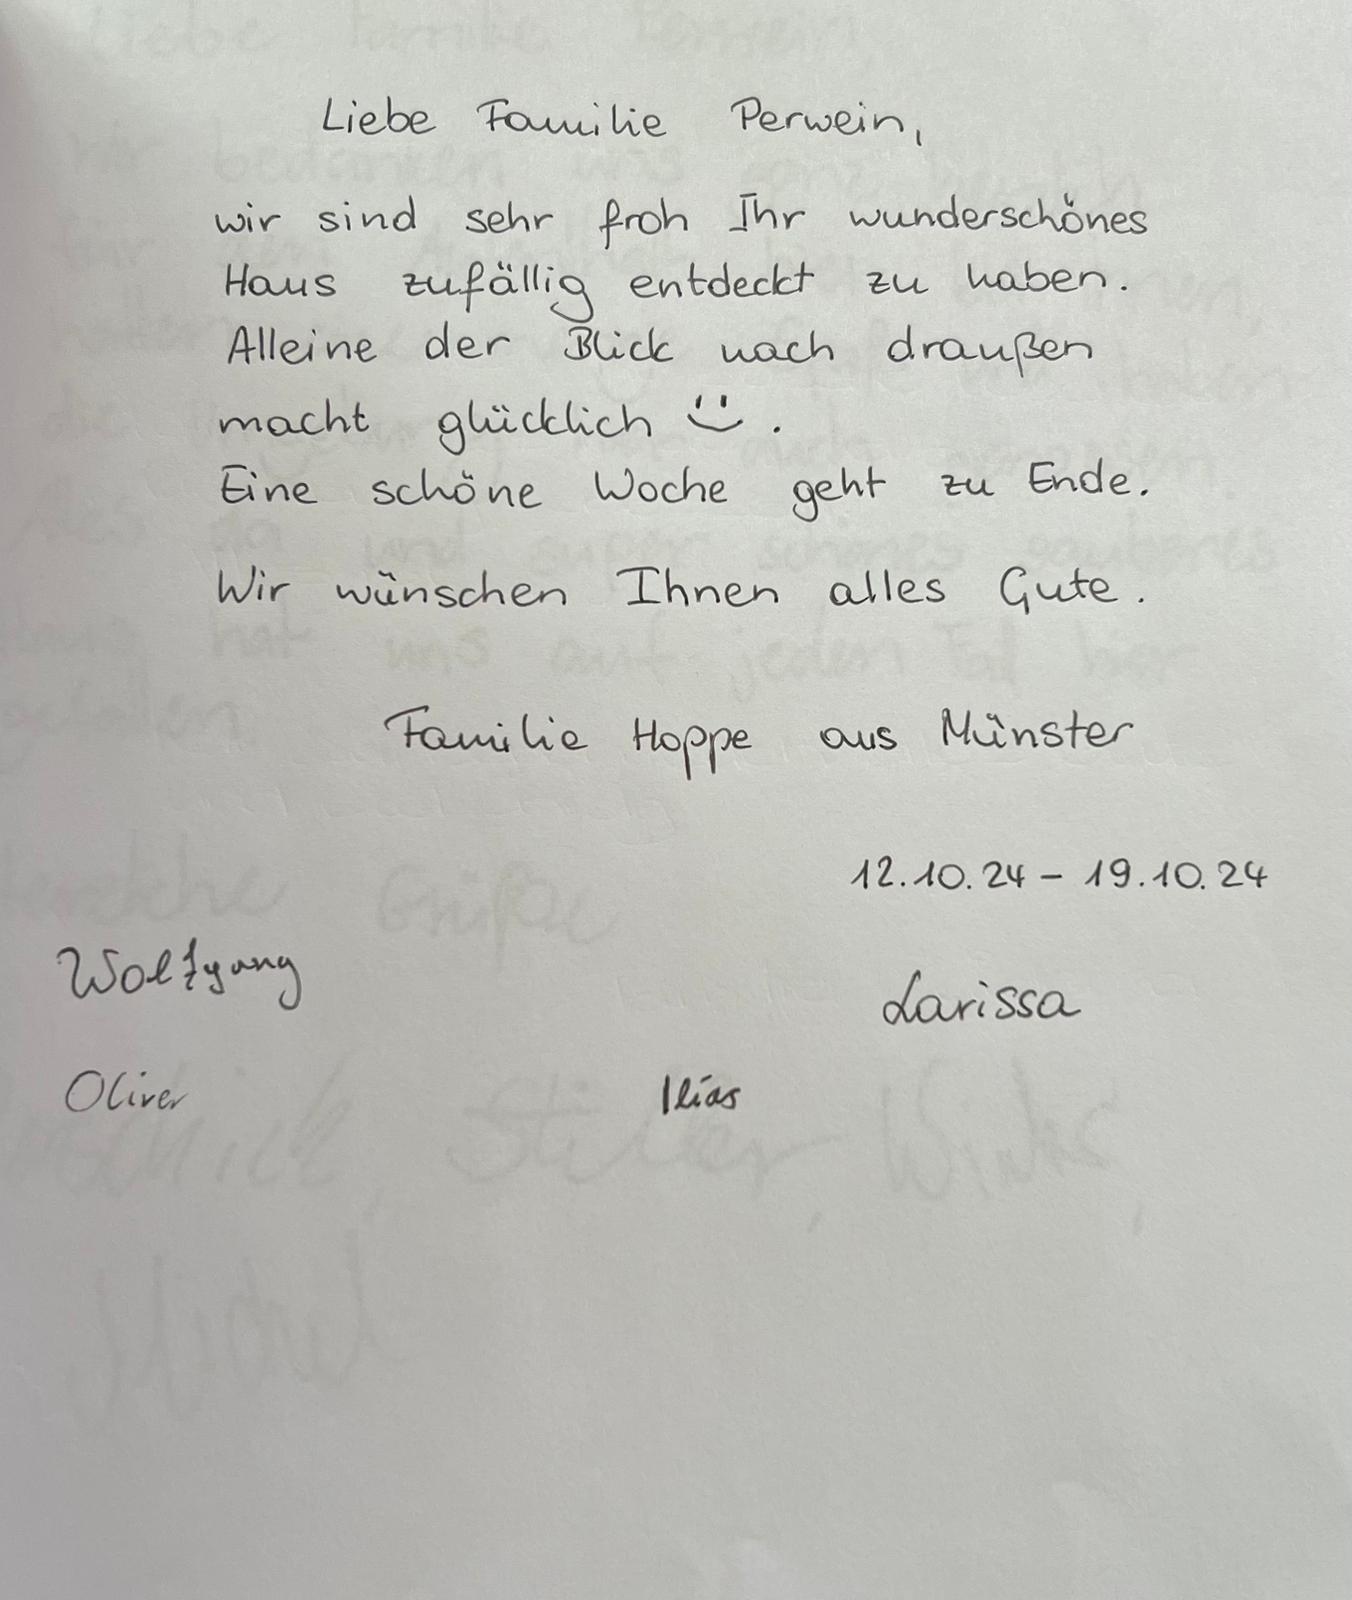 Liebe Familie Perwein,
wir sind sehr froh Ihr wunderschönes
Haus zufällig entdeckt zu haben.
Alleine der Blick nach draußen
macht glücklich .
Eine schöne Woche geht zu Ende.
Wir wünschen Ihnen alles Gute.
Familie Hoppe aus Münster
12.10.24 - 19.10.24
Wolfgang
Larissa
Oliver Ilias